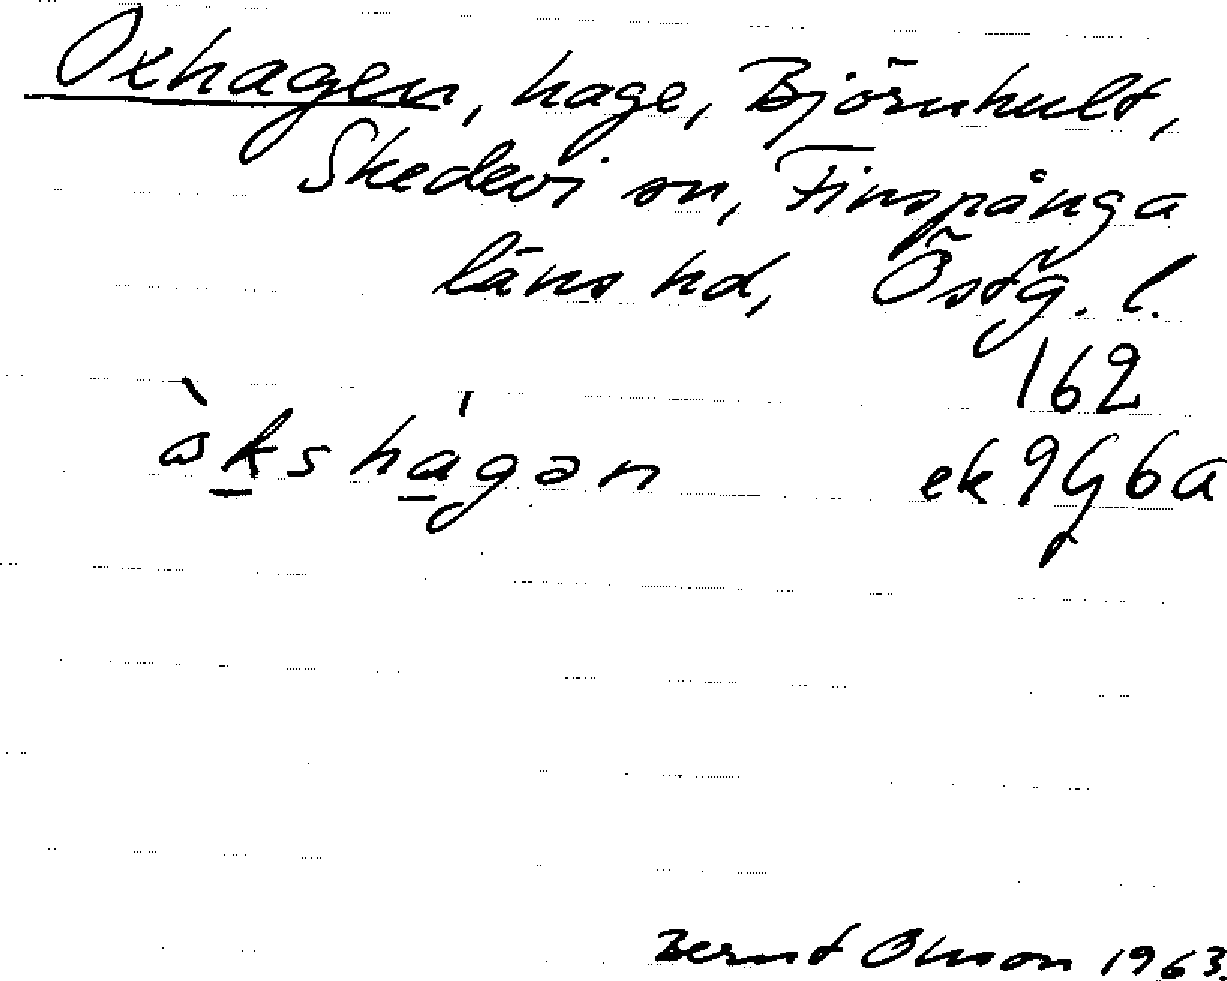 Oxhagen, hage, Björnhult,
Skedevi sn, Finspånga
läns hd, Östg. l.
162
ek 9G6a
Bernt Olsson 1963.